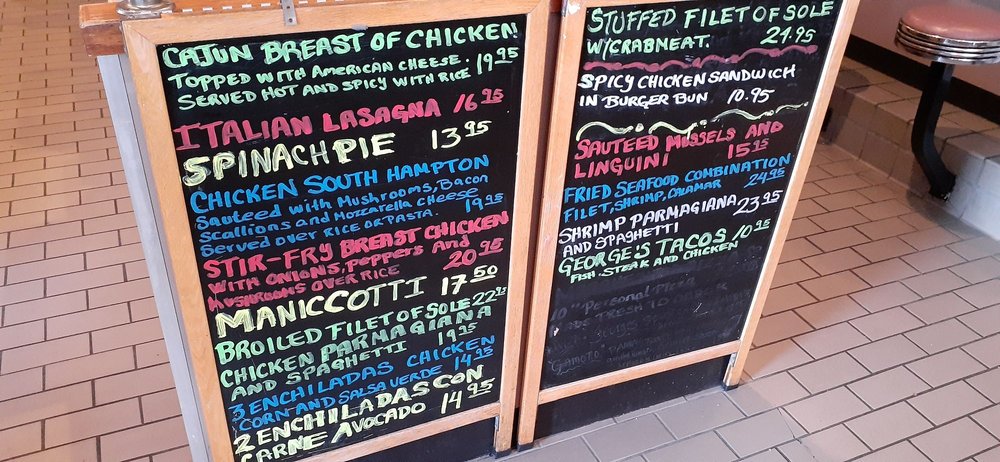 CAJUN BREAST OF CHICKEN!
TOPPED WITH AMERICAN CHEESE.
SERVED HOT AND SPICY WITH RICE 19.95
ITALIAN LASAGNA 16.95
SPINACH PIE 13.95
CHICKEN SOUTH HAMPTON
Sauteed with Mushrooms, Bacon
Scallions and Mozzarella cheese
Served over RICE OR PASTA. 19.95
STIR-FRY BREAST CHICKEN
WITH ONIONS, PEPPERS AND
MUSHROOMS OVER RICE 20.95
MANICCOTTI 17.50
BROILED FILET OF SOLE 22.95
CHICKEN PARMAGIANA
AND SPAGHETTI 19.95
3 ENCHILADAS CHICKEN
CORN AND SALSA VERDE 14.95
2 ENCHILADAS CON
CARNE AVOCADO 14.95
STUFFED FILET OF SOLE
W/CRABMEAT. 24.95
SPICY CHICKEN SANDWICH
IN BURGER BUN 10.95
SAUTEED MUSSELS AND
LINGUINI 15.95
FRIED SEAFOOD COMBINATION
FILET, SHRIMP, CALAMAR 24.95
SHRIMP PARMAGIANA
AND SPAGHETTI 23.95
GEORGE'S TACOS 10.95
FISH-STEAK AND CHICKEN
10" Personal Pizza